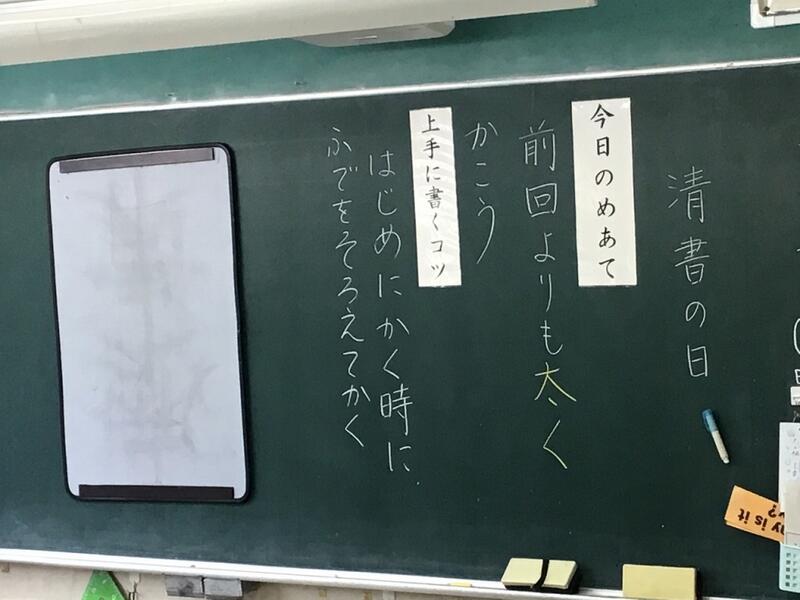 清書の日
今日のめあて
前回よりも太く
かこう
上手に書くコツ
はじめにかく時に
ふでをそろえてかく